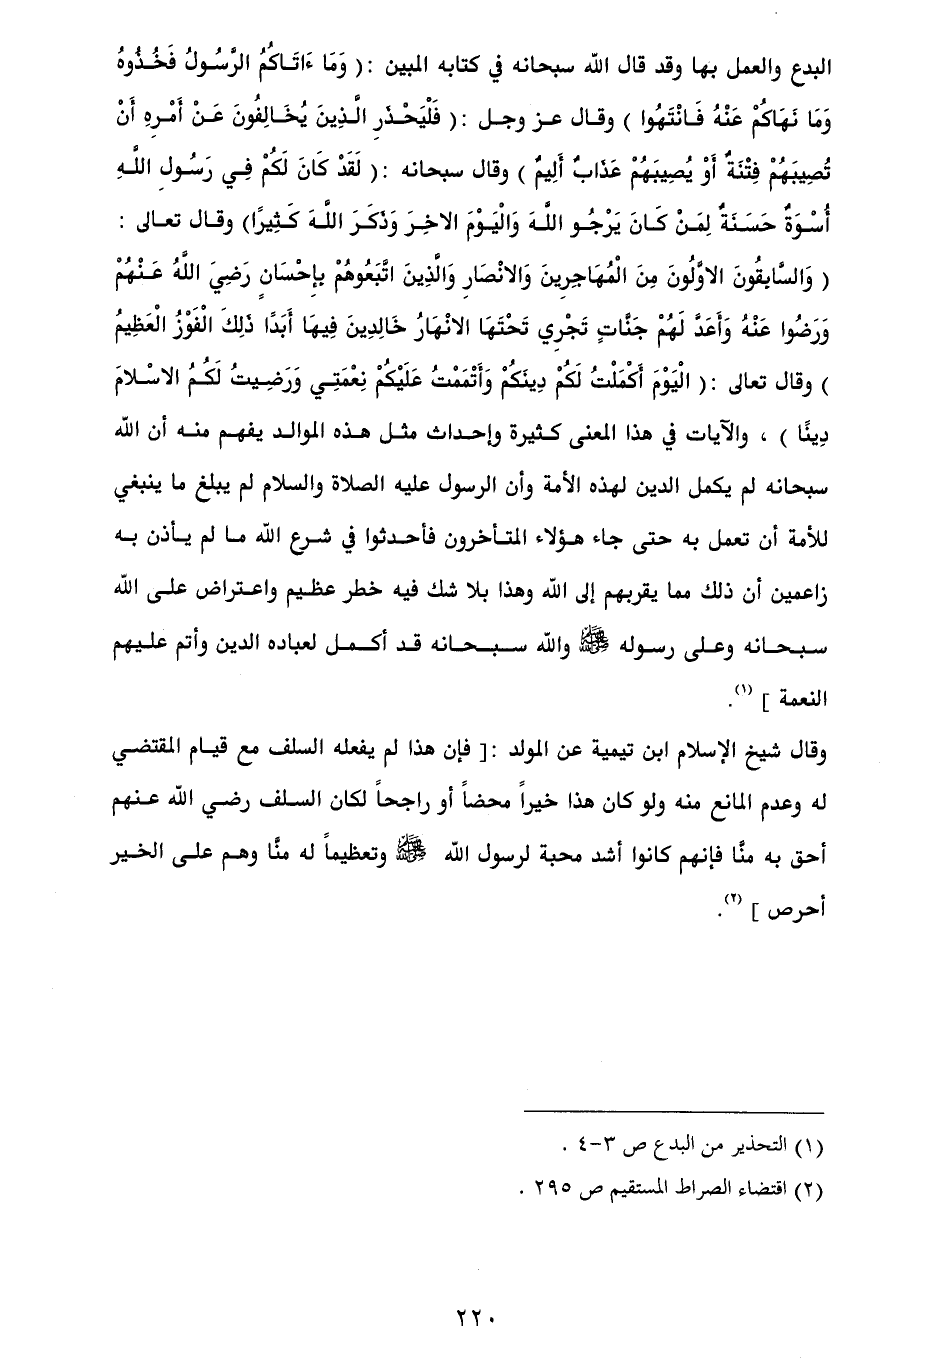 البدع والعمل بها وقد قال الله سبحانه في كتابه المبين :( وَمَا ءَاتَاكُمُ الرَّسُولُ فَخُذُوهُ
وَمَا نَهَاكُمْ عَنْهُ فَانْتَهُوا ) وقال عز وجل :( فَلْيَحْذَرِ الَّذِينَ يُخَالِفُونَ عَنْ أَمْرِهِ أَنْ
تُصِيبَهُمْ فِتْنَةٌ أَوْ يُصِيبَهُمْ عَذَابٌ أَلِيمٌ ) وقال سبحانه :( لَقَدْ كَانَ لَكُمْ فِي رَسُولِ اللَّهِ
أُسْوَةٌ حَسَنَةٌ لِمَنْ كَانَ يَرْجُو اللَّهَ وَالْيَوْمَ الاخِرَ وَذَكَرَ اللَّهَ كَثِيرًا) وقال تعالى :
( وَالسَّابِقُونَ الاوَّلُونَ مِنَ الْمُهَاجِرِينَ وَالانْصَارِ وَالَّذِينَ اتَّبَعُوهُمْ بِإِحْسَانٍ رَضِيَ اللَّهُ عَنْهُمْ
وَرَضُوا عَنْهُ وَأَعَدَّ لَهُمْ جَنَّاتٍ تَجْرِي تَحْتَهَا الانْهَارُ خَالِدِينَ فِيهَا أَبَدًا ذَلِكَ الْفَوْزُ الْعَظِيمُ
) وقال تعالى :( الْيَوْمَ أَكْمَلْتُ لَكُمْ دِينَكُمْ وَأَتْمَمْتُ عَلَيْكُمْ نِعْمَتِي وَرَضِيتُ لَكُمُ الاسْلامَ
دِينًا ) ، والآيات في هذا المعنى كثيرة وإحداث مثل هذه الموالد يفهم منه أن الله
سبحانه لم يكمل الدين لهذه الأمة وأن الرسول عليه الصلاة والسلام لم يبلغ ما ينبغي
للأمة أن تعمل به حتى جاء هؤلاء المتأخرون فأحدثوا في شرع الله ما لم يأذن به
زاعمين أن ذلك مما يقربهم إلى الله وهذا بلا شك فيه خطر عظيم واعتراض على الله
سبحانه وعلى رسوله ﷺ والله سبحانه قد أكمل لعباده الدين وأتم عليهم
النعمة ] (١).
وقال شيخ الإسلام ابن تيمية عن المولد :[ فإن هذا لم يفعله السلف مع قيام المقتضي
له وعدم المانع منه ولو كان هذا خيراً محضاً أو راجحاً لكان السلف رضي الله عنهم
أحق به منَّا فإنهم كانوا أشد محبة لرسول الله ﷺ وتعظيماً له منَّا وهم على الخير
أحرص ] (٢).
(١) التحذير من البدع ص ٣-٤ .
(٢) اقتضاء الصراط المستقيم ص ٢٩٥ .
٢٢٠